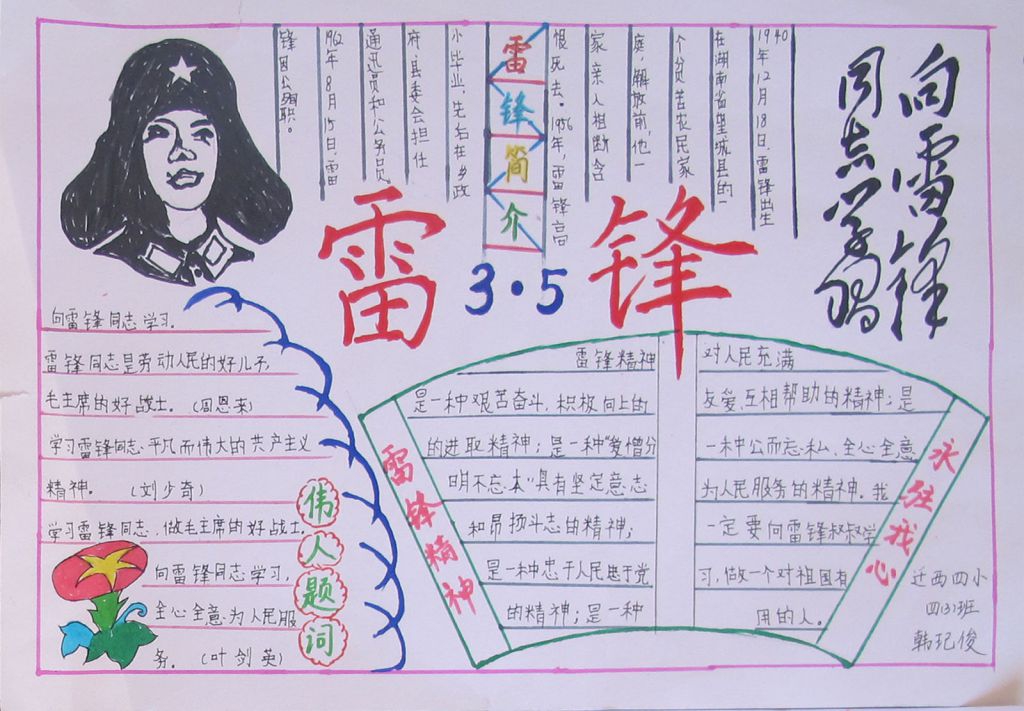 向雷锋
同志学习
雷锋简介
1940年12月18日,雷锋出生
在湖南省望城县的一
个贫苦农民家
庭,解放前,他一
家亲人相断含
恨死去。1956年,雷锋高
小毕业,先后在乡政
府、县委会担任
通讯员和公务员
1962年8月15日,雷
锋因公殉职。
雷锋
3·5
向雷锋同志学习.
雷锋同志是劳动人民的好儿子,
毛主席的好战士.(周恩来)
学习雷锋同志平凡而伟大的共产主义
精神.(刘少奇)
学习雷锋同志,做毛主席的好战士.
向雷锋同志学习,
全心全意为人民服
务.(叶剑英)
伟人题词
雷锋精神
雷锋精神
是一种艰苦奋斗,积极向上的
的进取精神;是一种“爱憎分
明不忘本”具有坚定意志
和昂扬斗志的精神;
是一种忠于人民忠于党
的精神;是一种
对人民充满
友爱互相帮助的精神;是
一种公而忘私、全心全意
为人民服务的精神.我
一定要向雷锋叔叔学
习,做一个对祖国有
用的人.
永驻我心
迁西四小
四(3)班